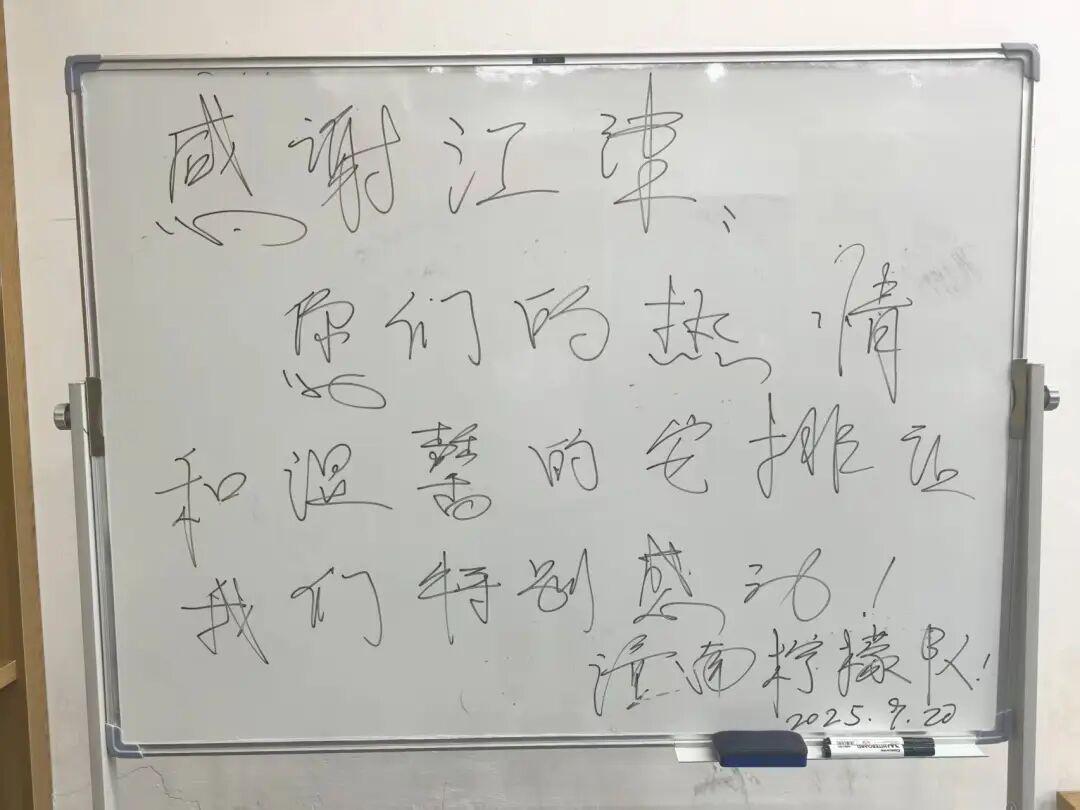 感谢江津：
您们的热情
和温馨的安排让
我们特别感动！
潼南柠檬队！
2025.9.20